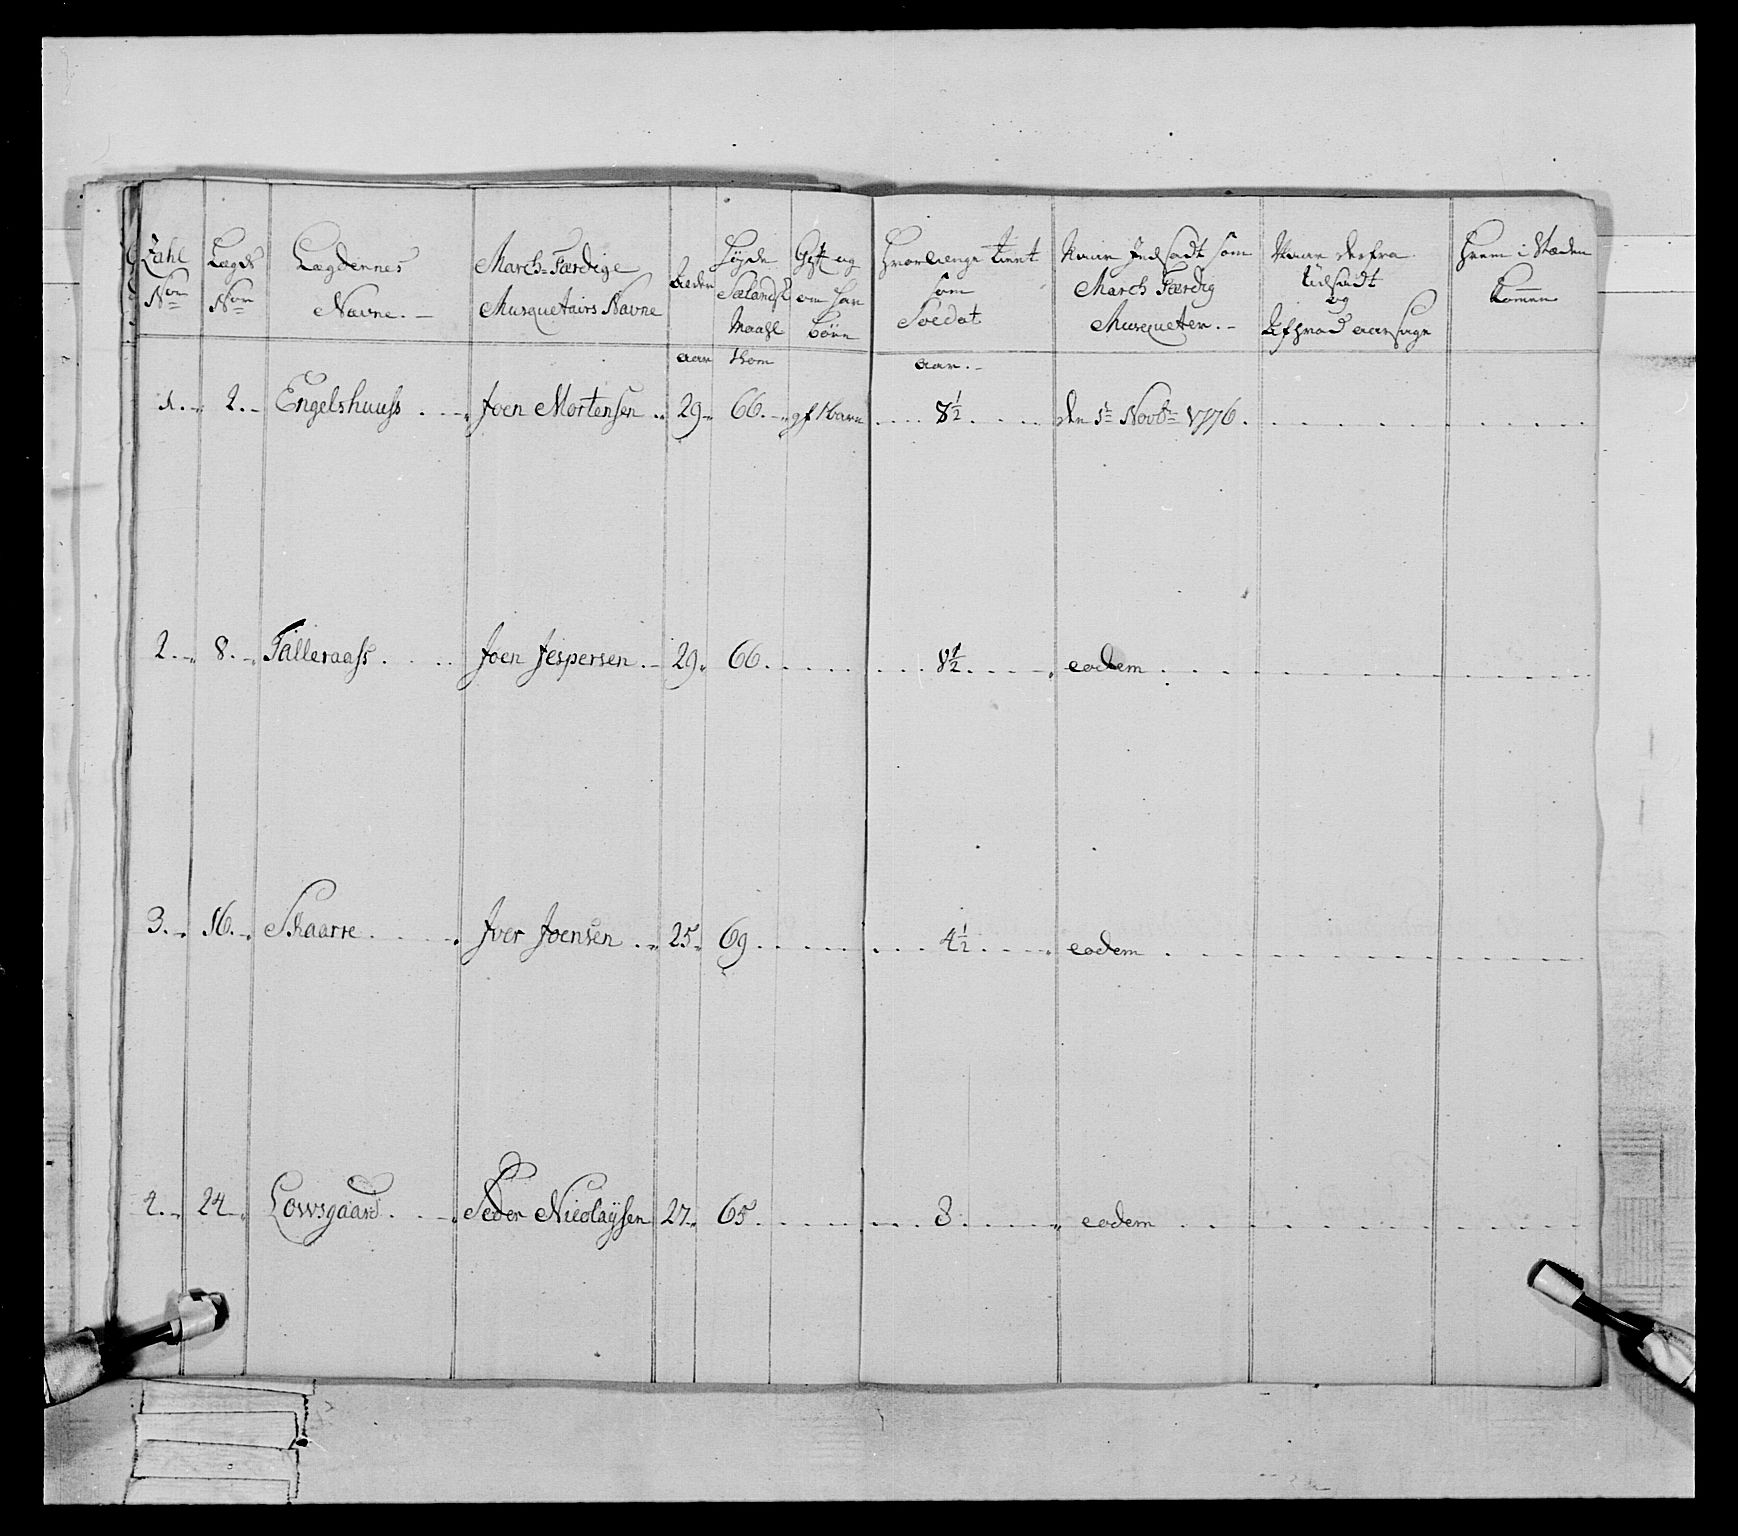 Zahl Nor
Lægds Nor
Lægdernes Navne. -
March-Færdige Musquetairs Navne
Alder
Høyde Sælandsk Maahl
Gift og om har Börn
Hvor længe tient som Soldat
Naar Indsadt som March Færdig Musqueter. -
Naar derfra Udsadt og Af hvad aarsage
Hvem i Stæden kommen
aar tkom aar. -
1. 2. Engelshuuss Joen Mortensen 29 66 gf 1 barn 8½ den 1te Novbr 1776.
2. 8. Talleraass Joen Jespersen 29 66 8½ eodem
3. 16. Skaarre Joer Joensen 25 69 4½ eodem
4. 24 Lowsgaard Peder Nicolaysen 27 65 3 eodem